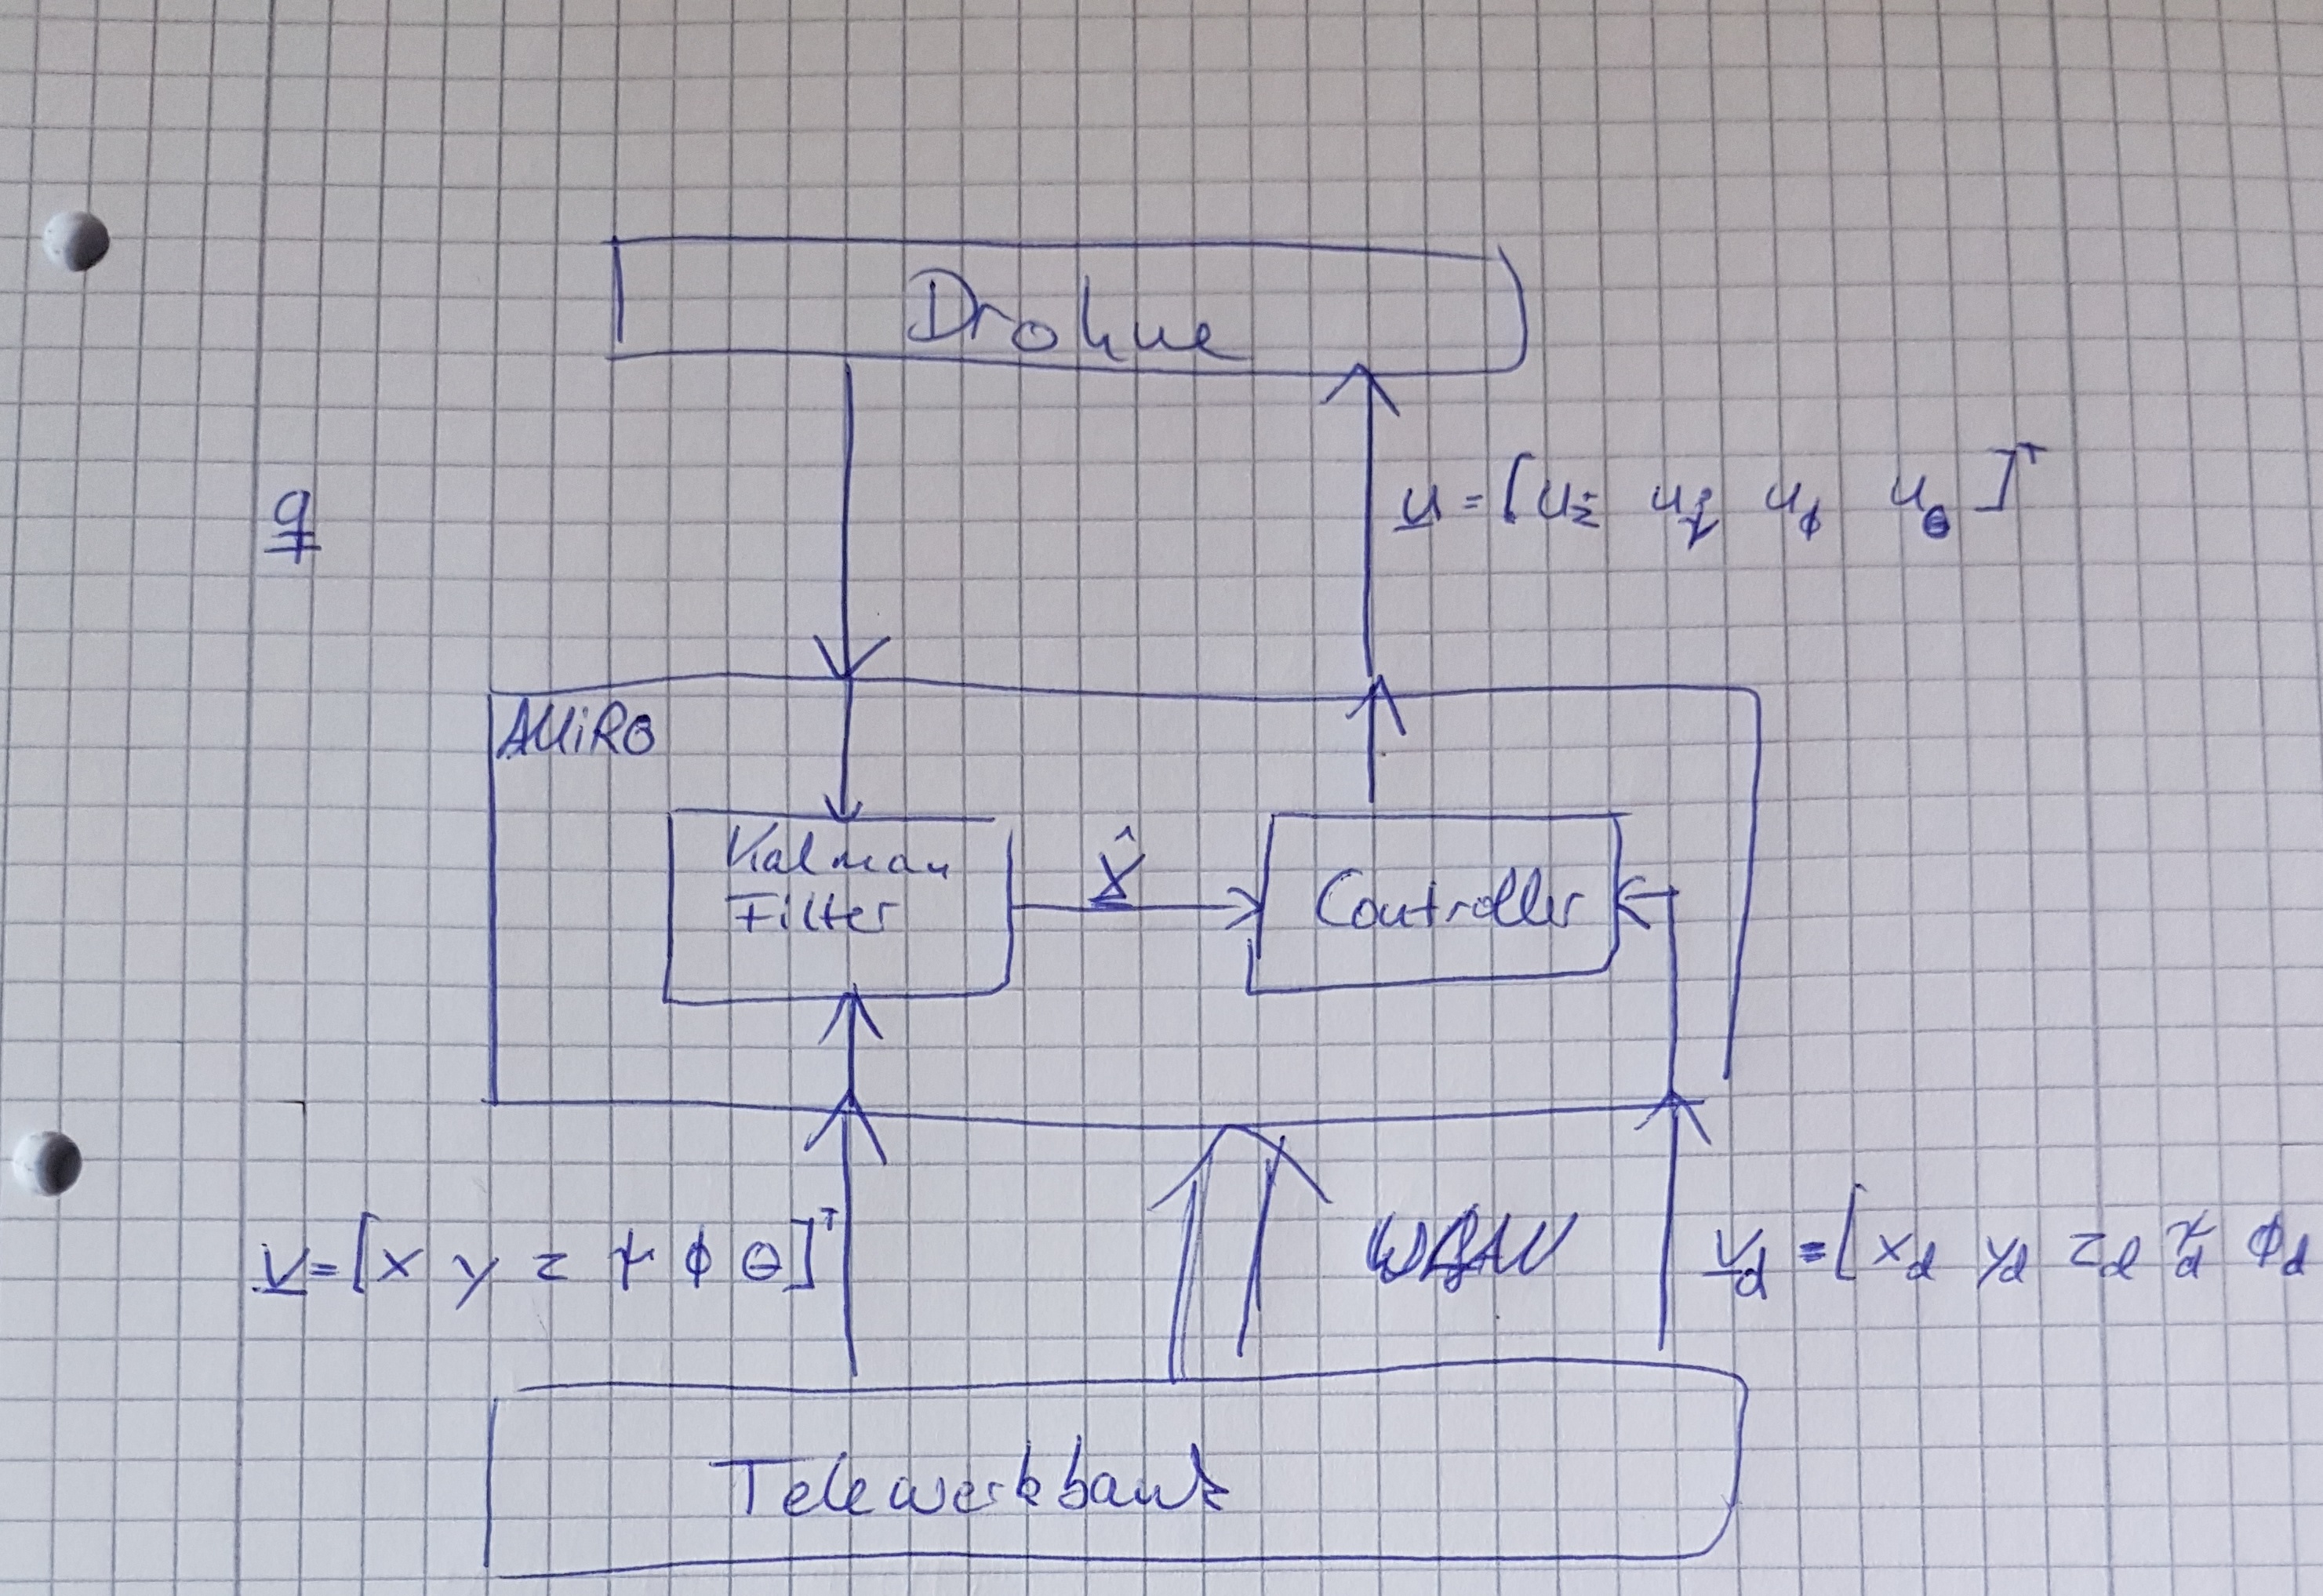 Drohne
q
u = [u_ż u_ψ̇ u_ϕ u_θ]^T
AMiRO
Kalman
Filter
x̂
Controller
v = [x y z ψ ϕ θ]^T
WLAN
v_d = [x_d y_d z_d ψ_d ϕ_d
Telewerkbank